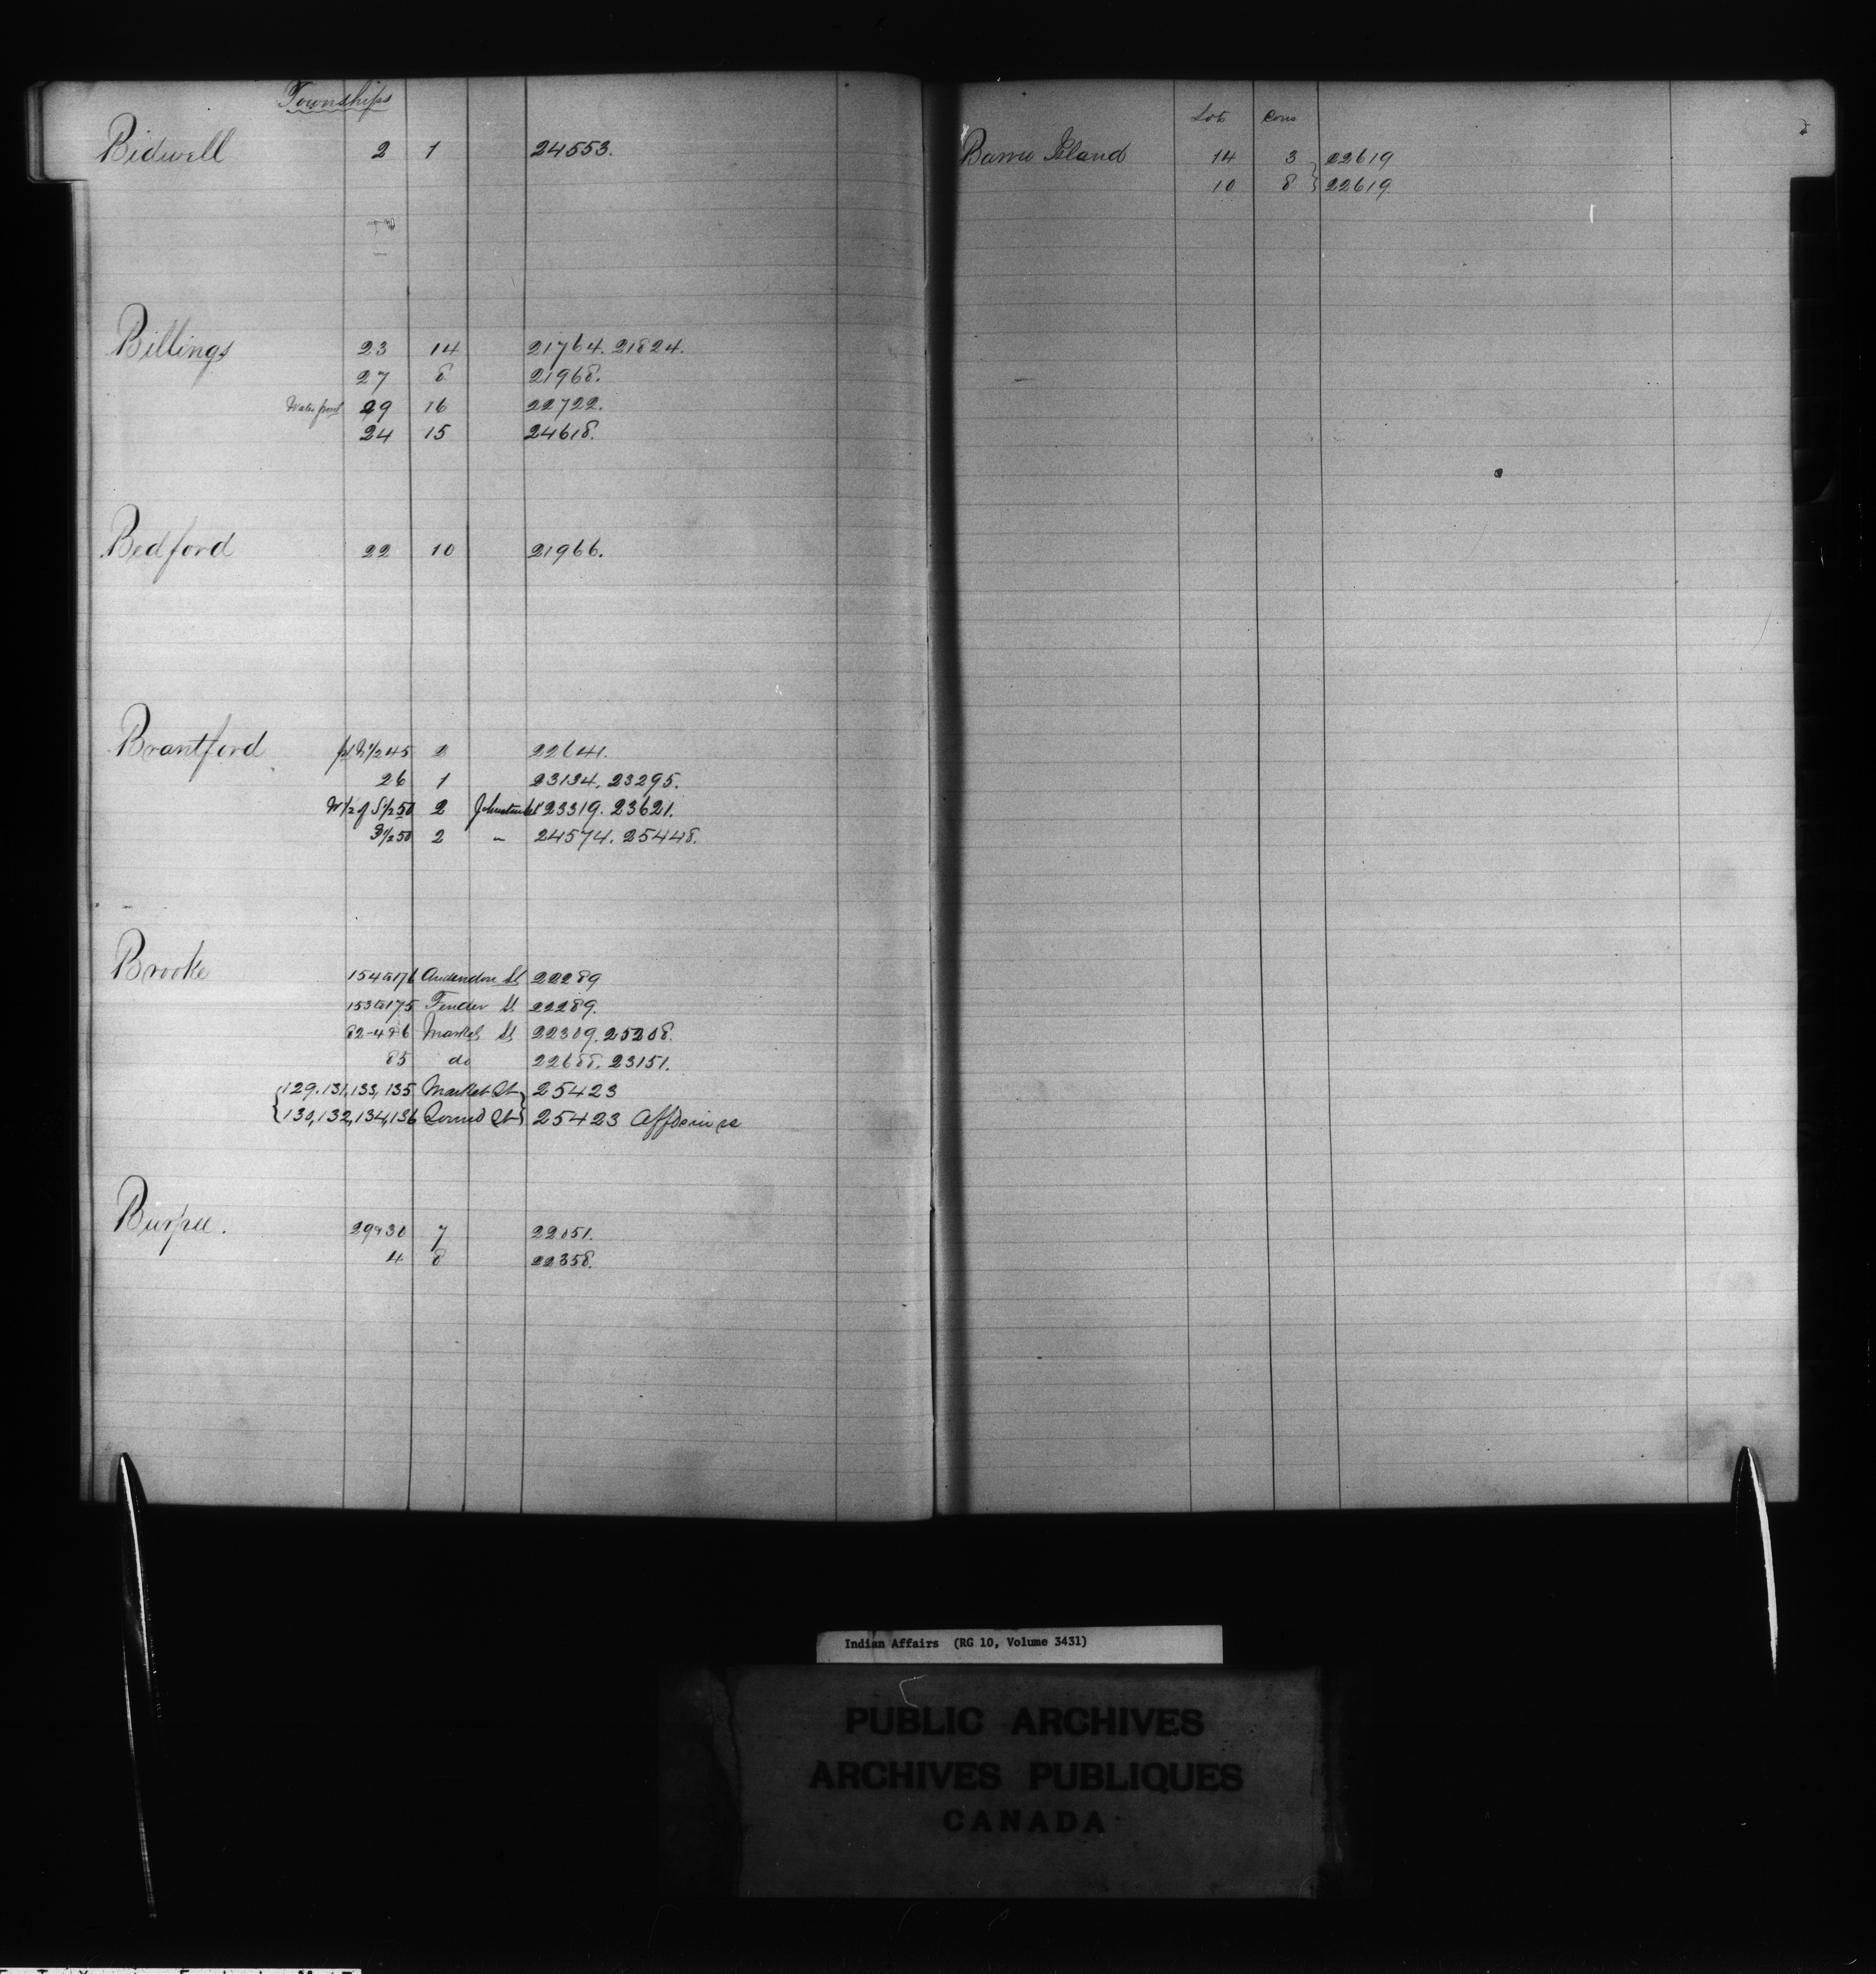 Townships
Bidwell 2 1 24553.
Billings 23 14 21764. 21824.
27 8 21968.
Water front 29 16 22722.
24 15 24618.
Bedford 22 10 21966.
Brantford 45 2 22641.
26 1 23134, 23295.
W 1/2 of S 1/2 50 2 23319. 23621.
50 2 " 24574. 25448.
Brooke 154 to 176 St 22289
153 to 175 St 22289.
Market St 22309. 25208.
85 do 22688. 23151.
{129, 131, 133, 135 Market St} 25423
{130, 132, 134, 136 Sound St} 25423
Burpee. 29 & 30 7 22051.
4 8 22358.
Lot Con
Barrie Island 14 3 } 22619
10 8 } 22619.
Indian Affairs (RG 10, Volume 3431)
PUBLIC ARCHIVES
ARCHIVES PUBLIQUES
CANADA